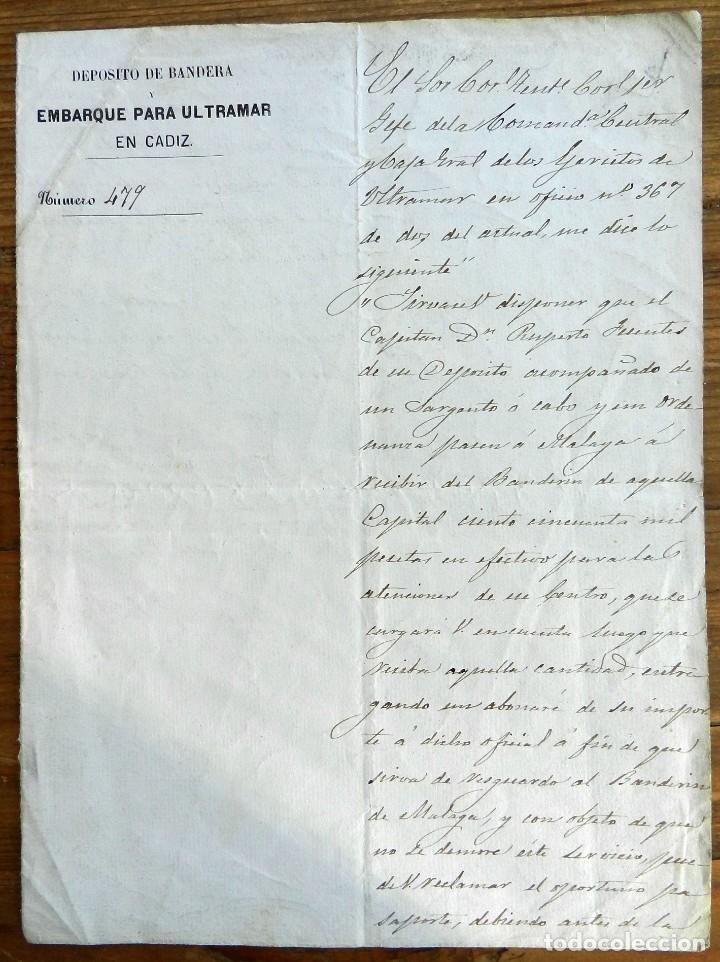 DEPOSITO DE BANDERA
Y
EMBARQUE PARA ULTRAMAR
EN CADIZ.
Número 479
El Sor Corl. Tente Corl. 1er
Gefe de la Comanda. Central
y Caja Gral de los Egércitos de
Ultramar en oficio nº 367
de dos del actual, me dice lo
siguiente"
"Sirvase V. disponer que el
Capitan Dn. Ruperto Fuentes
de su Deposito acompañado de
un Sargento ó cabo y un Orde-
nanza pasen á Malaga á
recibir del Banderin de aquella
Capital ciento cincuenta mil
pesetas en efectivo para las
atenciones de su Centro, que se
cargará V. en cuenta luego que
reciba aquella cantidad, entre
gando un abonaré de su impor
te á dicho oficial á fin de que
sirva de resguardo al Banderin
de Malaga, y con objeto de que
no se demore éste servicio, pue-
de V. reclamar el oportuno pa
saporte, debiendo antes de la
todocoleccion.net